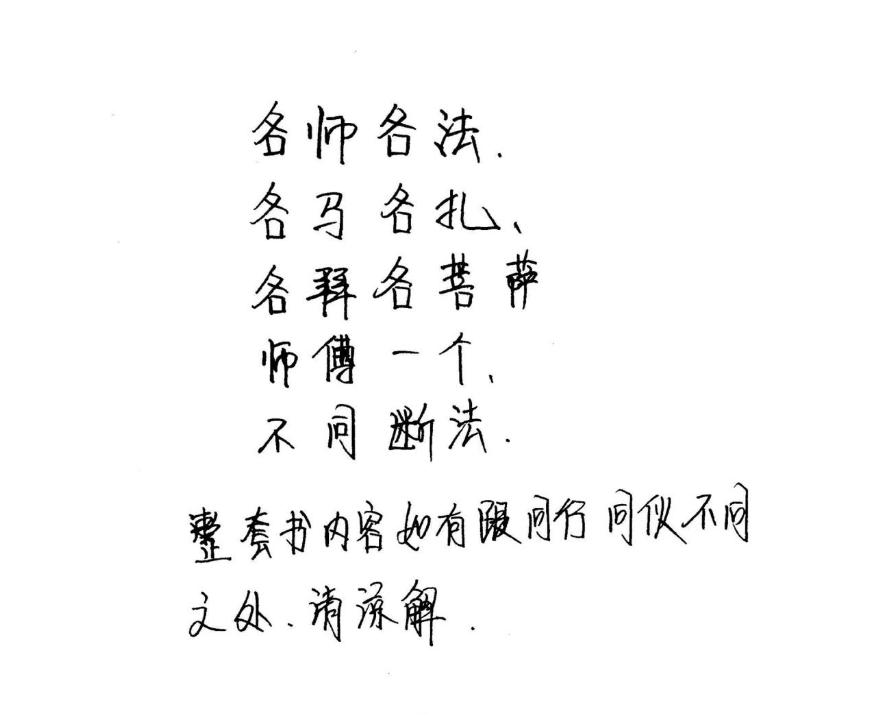 各师各法.
各马各扎、
各拜各菩萨
师傅一个、
不同断法.
整套书内容如有跟同行同伙不同
之处.请谅解.